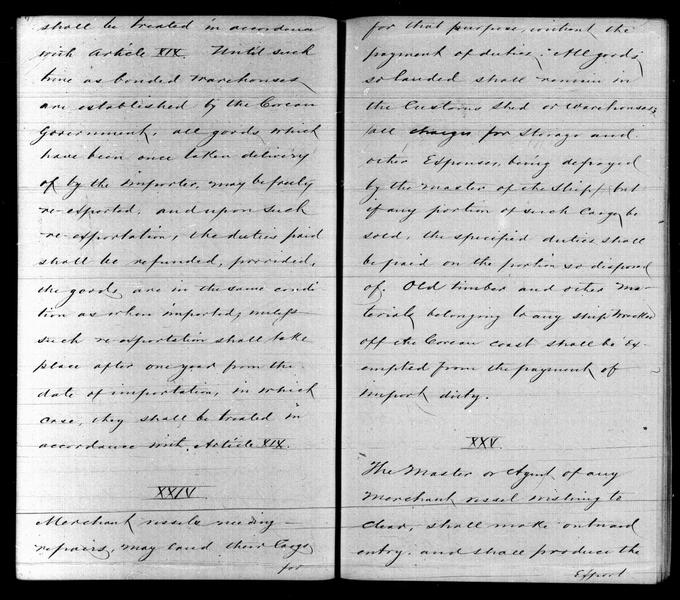 shall be treated in accordance
with Article XIX. Until such
time as bonded warehouses
are established by the Corean
Government, all goods, which
have been once taken delivery
of by the importer, may be freely
re-exported, and upon such
re-exportation, the duties paid
shall be refunded, provided,
the goods, are in the same condi
tion as when imported, unless
such re-exportation shall take
place after one year from the
date of importation, in which
case, they shall be treated in
accordance with Article XIX.
XXIV
Merchant vessels needing
repairs, may land their Cargo
for
for that purpose, without the
payment of duties. All goods
so landed shall remain in
the Customs shed or warehouses,
all charges for storage and
other Expenses, being defrayed
by the Master of the ship, but
if any portion of such Cargo, be
sold, the specified duties shall
be paid on the portion so disposed
of. Old timber and other ma-
terials belonging to any ship wrecked
off the Corean coast shall be Ex-
empted from the payment of
import duty.
XXV
The Master or Agent of any
Merchant vessel wishing to
clear, shall make outward
entry, and shall produce the
Export